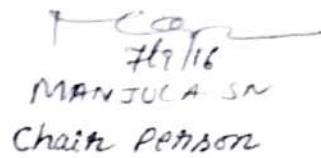 7/9/16
MANJULA SN
Chair Person